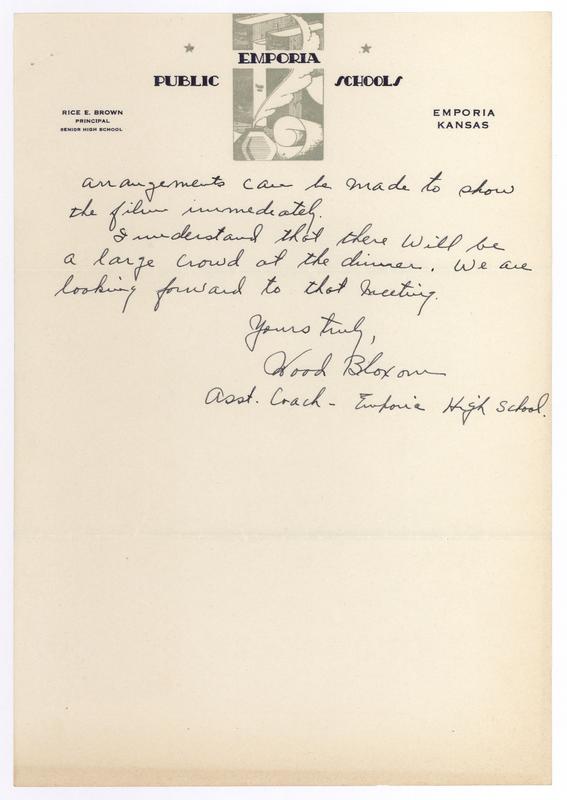 EMPORIA
PUBLIC SCHOOLS
RICE E. BROWN
PRINCIPAL
SENIOR HIGH SCHOOL
EMPORIA
KANSAS
arrangements can be made to show
the film immediately.
I understand that there will be
a large crowd at the dinner. We are
looking forward to that meeting.
Yours truly,
Wood Bloxom
Asst. Coach - Emporia High School.